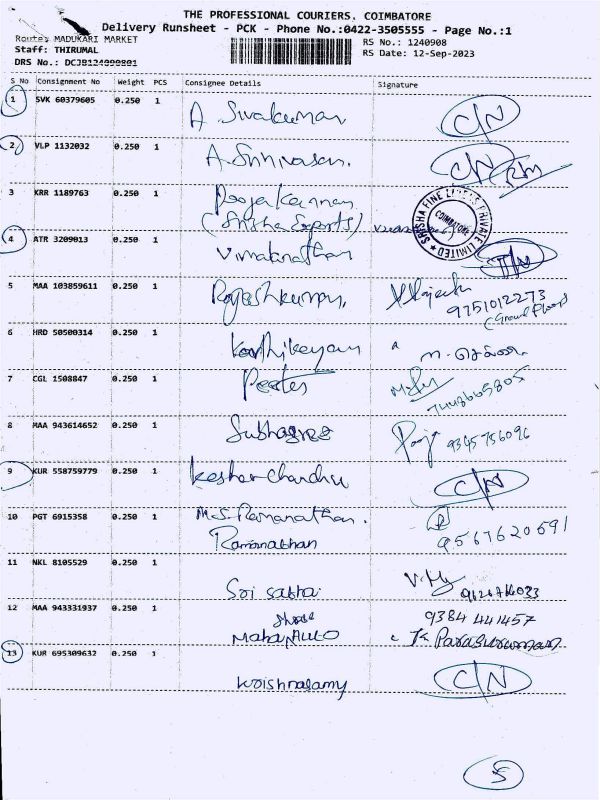 THE PROFESSIONAL COURIERS, COIMBATORE
Delivery Runsheet - PCK - Phone No.:0422-3505555 - Page No.:1
Route: MADUKARI MARKET
RS No.: 1240908
Staff: THIRUMAL
RS Date: 12-Sep-2023
DRS No.: DCJB124090801
S No Consignment No Weight PCS Consignee Details Signature
1 SVK 60379605 0.250 1 A Sivakumar C/N
2 VLP 1132032 0.250 1 A. Srinivasan. C/N
3 KRR 1189763 0.250 1 Pooja Kannan
(Srisha Exports)
SRISHA FINE PRIVATE LIMITED COIMBATORE
4 ATR 3209013 0.250 1 Vimalanathan
5 MAA 103859611 0.250 1 Rajeshkumar. 9751012273
(Ground Floor)
6 HRD 50500314 0.250 1 Karthikeyan
7 CGL 1508847 0.250 1 Peeter
8 MAA 943614652 0.250 1 Subhasree Pooja 9345756096
9 KUR 558759779 0.250 1 Keshar Chandru C/N
10 PGT 6915358 0.250 1 M.S. Ramanathan.
Ramanathan 9567620591
11 NKL 8105529 0.250 1 Sri sakthi
12 MAA 943331937 0.250 1 Shree 9384441457
Maha Auto K Parasuraman
13 KUR 695309632 0.250 1 Krishnasamy C/N
5